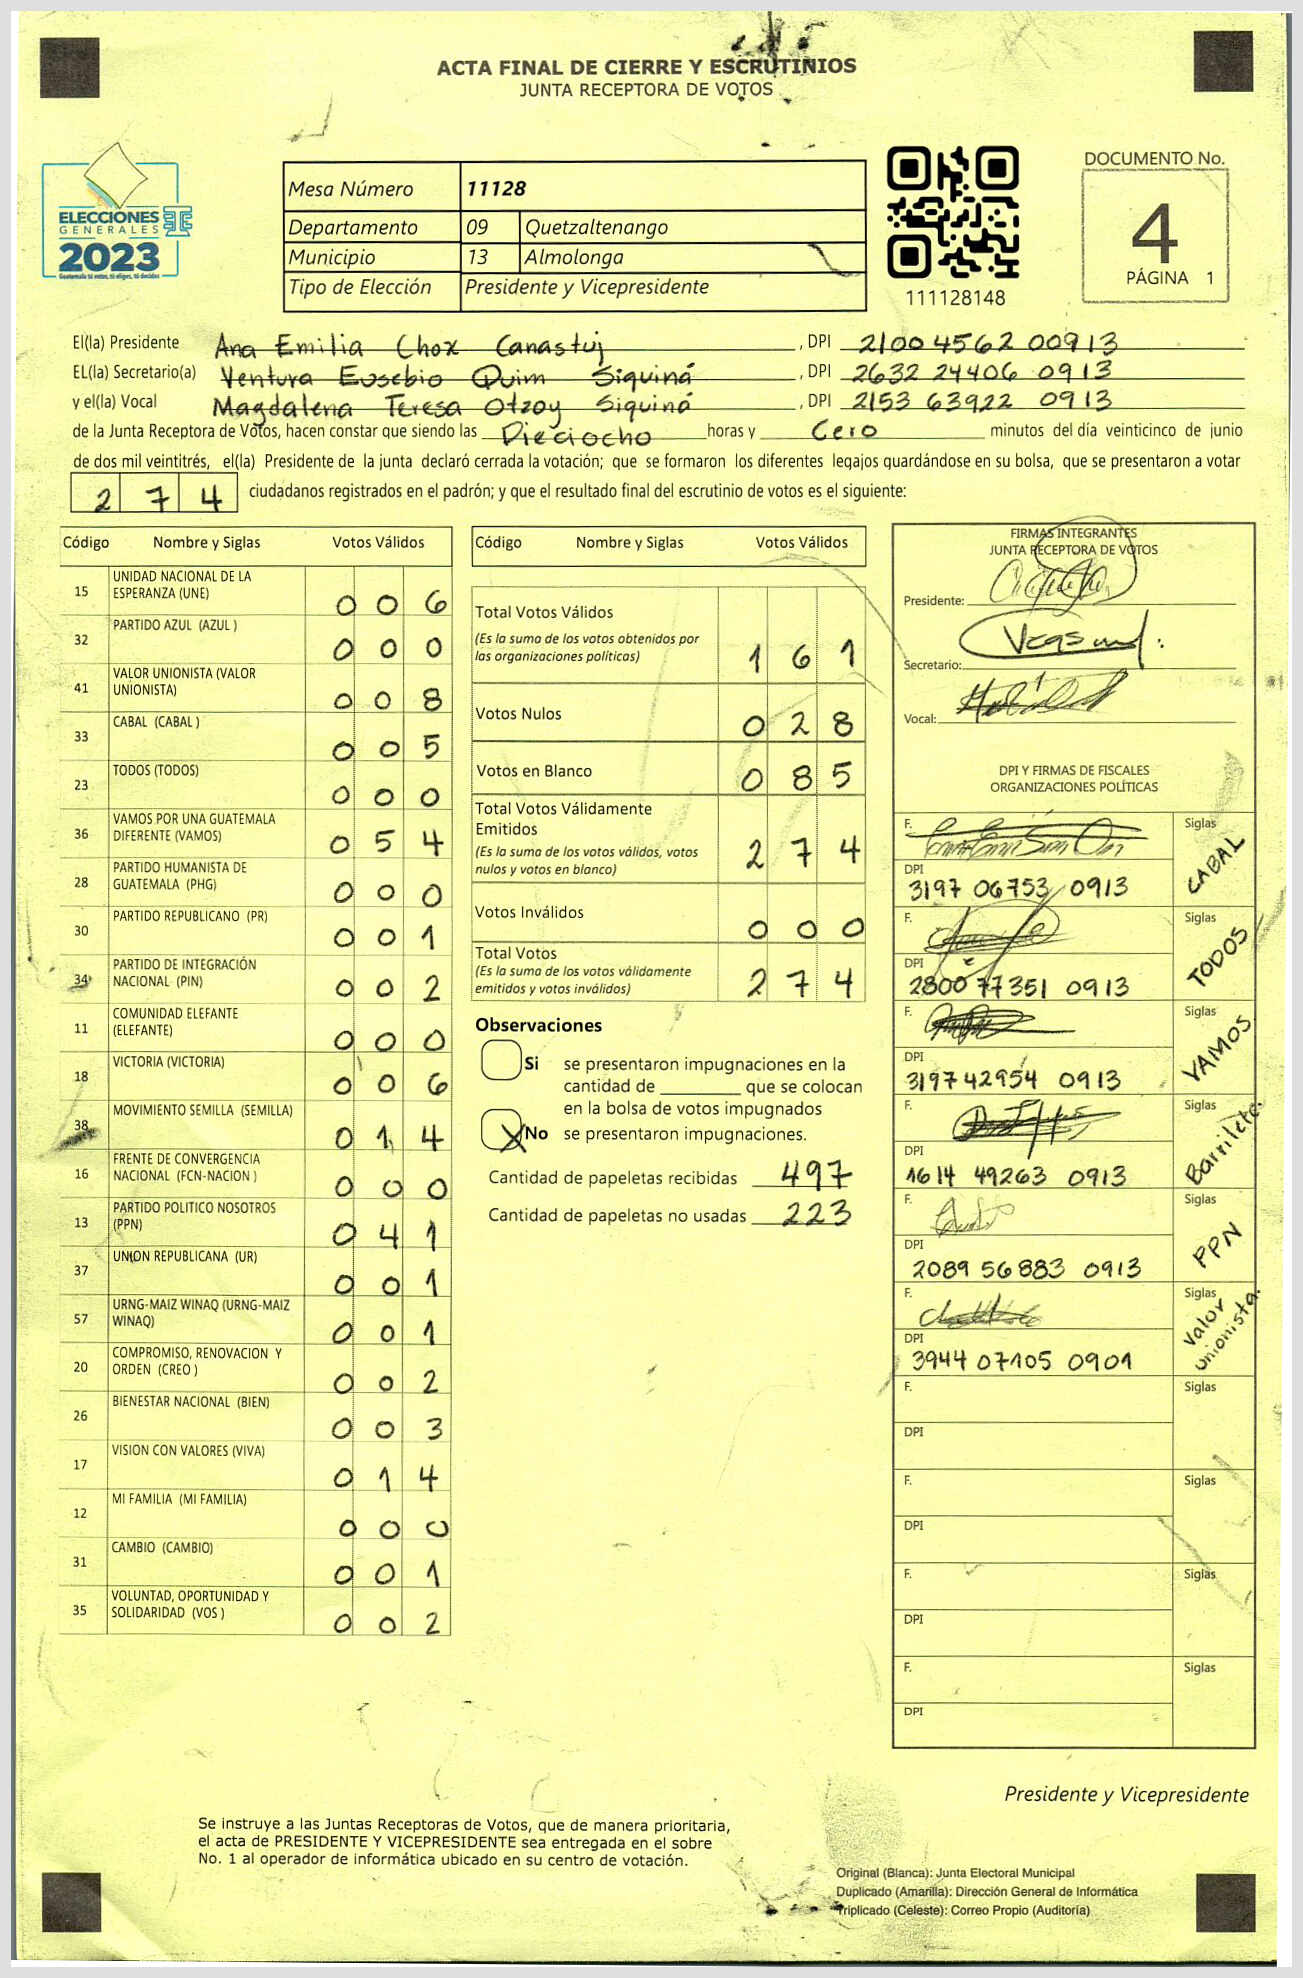 ACTA FINAL DE CIERRE Y ESCRUTINIOS
JUNTA RECEPTORA DE VOTOS
ELECCIONES
GENERALES
2023
Guatemala tú votas, tú eliges, tú decides
Mesa Número 11128
Departamento 09 Quetzaltenango
Municipio 13 Almolonga
Tipo de Elección Presidente y Vicepresidente
111128148
DOCUMENTO No.
4
PÁGINA 1
El(la) Presidente Ana Emilia Chox Canastuj , DPI 2100 4562 00913
EL(la) Secretario(a) Ventura Eusebio Quim Siquiná , DPI 2632 24406 0913
y el(la) Vocal Magdalena Teresa Otzoy Siquiná , DPI 2153 63922 0913
de la Junta Receptora de Votos, hacen constar que siendo las Dieciocho horas y Cero minutos del día veinticinco de junio
de dos mil veintitrés, el(la) Presidente de la junta declaró cerrada la votación; que se formaron los diferentes legajos guardándose en su bolsa, que se presentaron a votar
274 ciudadanos registrados en el padrón; y que el resultado final del escrutinio de votos es el siguiente:
Código Nombre y Siglas Votos Válidos
15 UNIDAD NACIONAL DE LA ESPERANZA (UNE) 006
32 PARTIDO AZUL (AZUL ) 000
41 VALOR UNIONISTA (VALOR UNIONISTA) 008
33 CABAL (CABAL ) 005
23 TODOS (TODOS) 000
36 VAMOS POR UNA GUATEMALA DIFERENTE (VAMOS) 054
28 PARTIDO HUMANISTA DE GUATEMALA (PHG) 000
30 PARTIDO REPUBLICANO (PR) 001
34 PARTIDO DE INTEGRACIÓN NACIONAL (PIN) 002
11 COMUNIDAD ELEFANTE (ELEFANTE) 000
18 VICTORIA (VICTORIA) 006
38 MOVIMIENTO SEMILLA (SEMILLA) 014
16 FRENTE DE CONVERGENCIA NACIONAL (FCN-NACION ) 000
13 PARTIDO POLITICO NOSOTROS (PPN) 041
37 UNION REPUBLICANA (UR) 001
57 URNG-MAIZ WINAQ (URNG-MAIZ WINAQ) 001
20 COMPROMISO, RENOVACION Y ORDEN (CREO ) 002
26 BIENESTAR NACIONAL (BIEN) 003
17 VISION CON VALORES (VIVA) 014
12 MI FAMILIA (MI FAMILIA) 000
31 CAMBIO (CAMBIO) 001
35 VOLUNTAD, OPORTUNIDAD Y SOLIDARIDAD (VOS ) 002
Código Nombre y Siglas Votos Válidos
Total Votos Válidos
(Es la suma de los votos obtenidos por
las organizaciones políticas) 161
Votos Nulos 028
Votos en Blanco 085
Total Votos Válidamente
Emitidos
(Es la suma de los votos válidos, votos
nulos y votos en blanco) 274
Votos Inválidos 000
Total Votos
(Es la suma de los votos válidamente
emitidos y votos inválidos) 274
Observaciones
Si se presentaron impugnaciones en la
cantidad de ________ que se colocan
en la bolsa de votos impugnados
No se presentaron impugnaciones.
Cantidad de papeletas recibidas 497
Cantidad de papeletas no usadas 223
FIRMAS INTEGRANTES
JUNTA RECEPTORA DE VOTOS
Presidente:
Secretario:
Vocal:
DPI Y FIRMAS DE FISCALES
ORGANIZACIONES POLÍTICAS
F. Siglas CABAL
DPI 3197 06753 0913
F. Siglas TODOS
DPI 2800 77351 0913
F. Siglas VAMOS
DPI 3197 42954 0913
F. Siglas Barrilete.
DPI 1614 49263 0913
F. Siglas PPN
DPI 2089 56883 0913
F. Siglas Valor Unionista.
DPI 3944 07105 0901
F. Siglas
DPI
F. Siglas
DPI
F. Siglas
DPI
F. Siglas
DPI
Presidente y Vicepresidente
Se instruye a las Juntas Receptoras de Votos, que de manera prioritaria,
el acta de PRESIDENTE Y VICEPRESIDENTE sea entregada en el sobre
No. 1 al operador de informática ubicado en su centro de votación.
Original (Blanca): Junta Electoral Municipal
Duplicado (Amarilla): Dirección General de Informática
Triplicado (Celeste): Correo Propio (Auditoría)